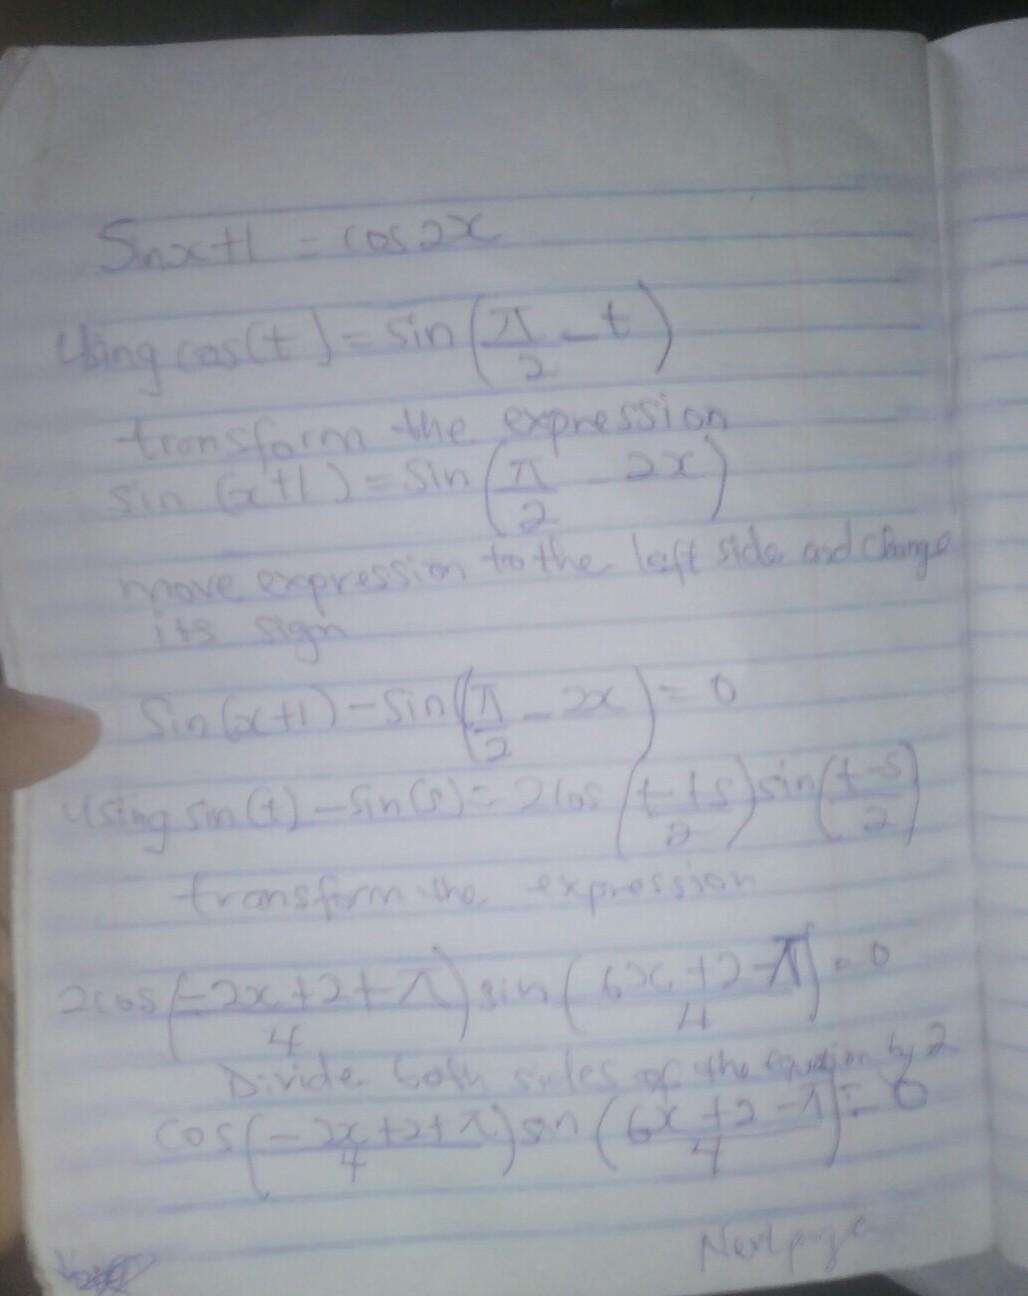 Sinx+1 = cos2x
Using cos(t) = sin(π/2 - t)
transform the expression
sin(x+1) = sin(π/2 - 2x)
move expression to the left side and change
its sign
Sin(x+1) - Sin(π/2 - 2x) = 0
Using sin(t) - Sin(s) = 2cos(t+s/2)sin(t-s/2)
transform the expression
2cos(-2x+2+π/4)sin(6x+2-π/4) = 0
Divide both sides of the equation by 2
cos(-2x+2+π/4)sin(6x+2-π/4) = 0
Next page